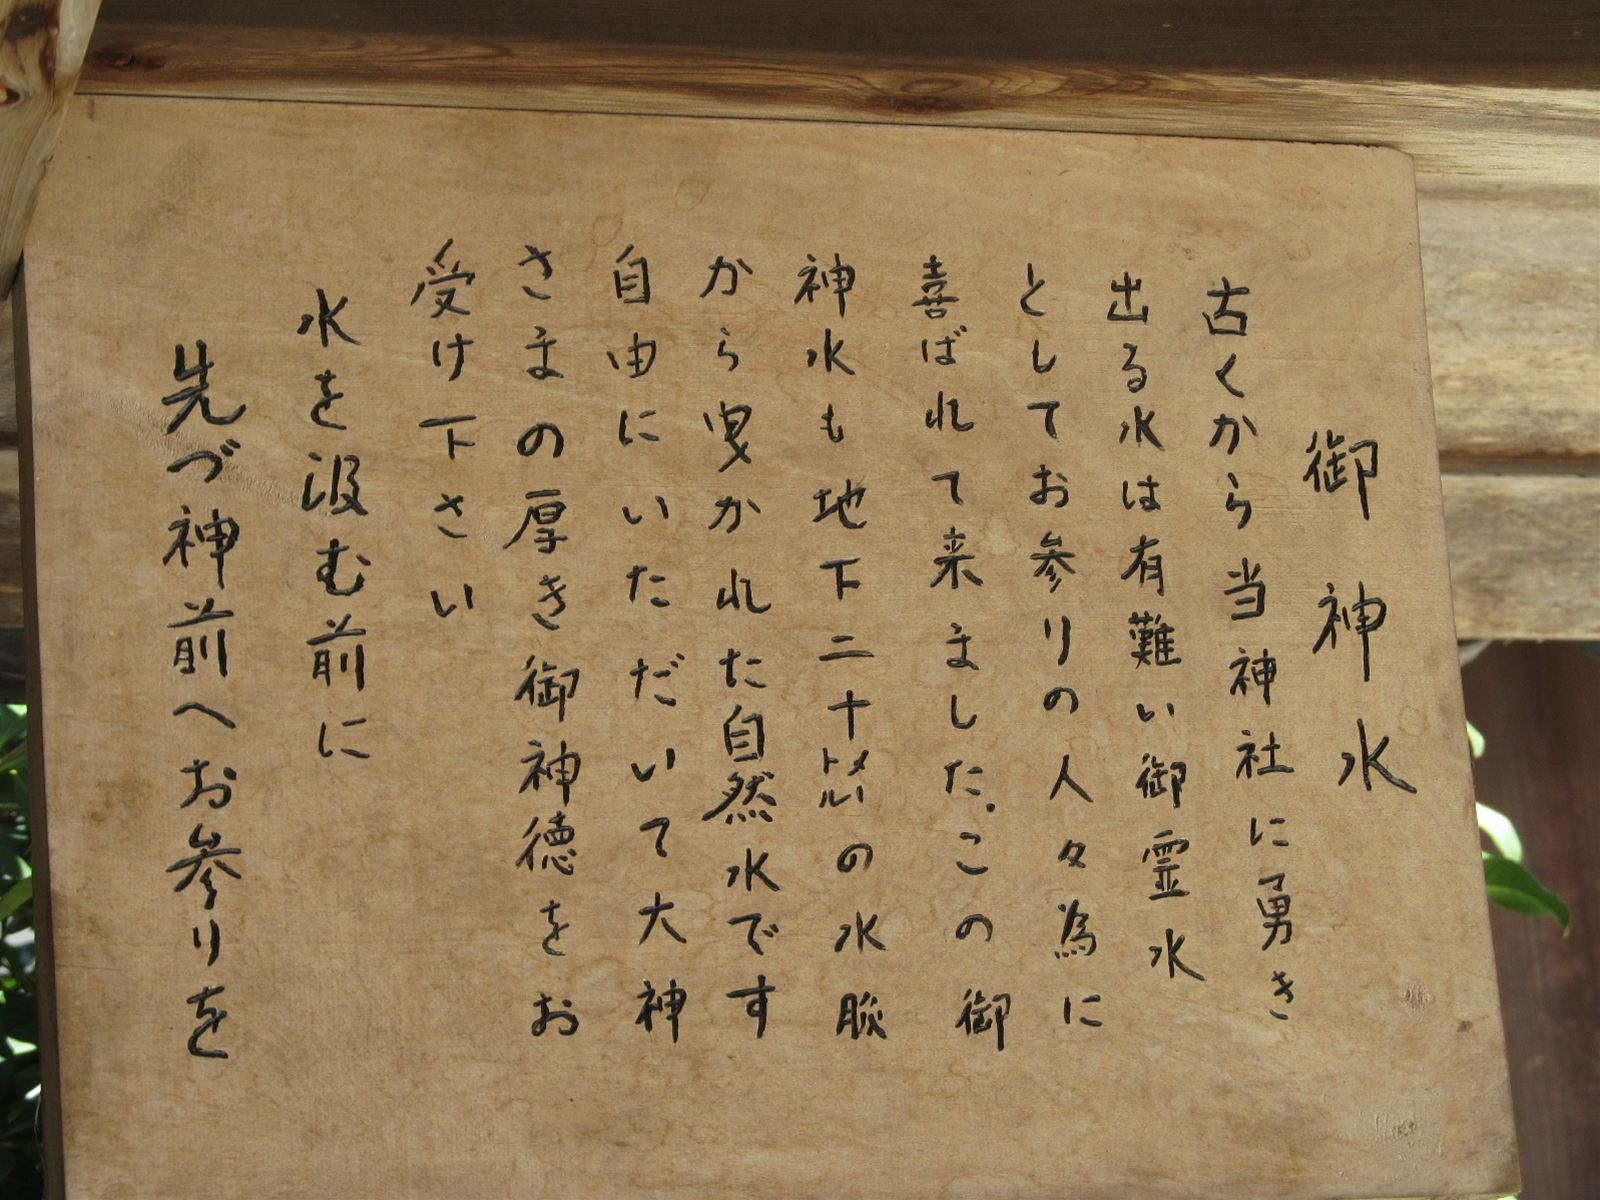 御神水
古くから当神社に勇き
出る水は有難い御霊水
としてお参りの人々為に
喜ばれて来ました。この御
神水も地下二十メートルの水脈
から曳かれた自然水です
自由にいただいて大神
さまの厚き御神徳をお
受け下さい
水を汲む前に
先づ神前へお参りを